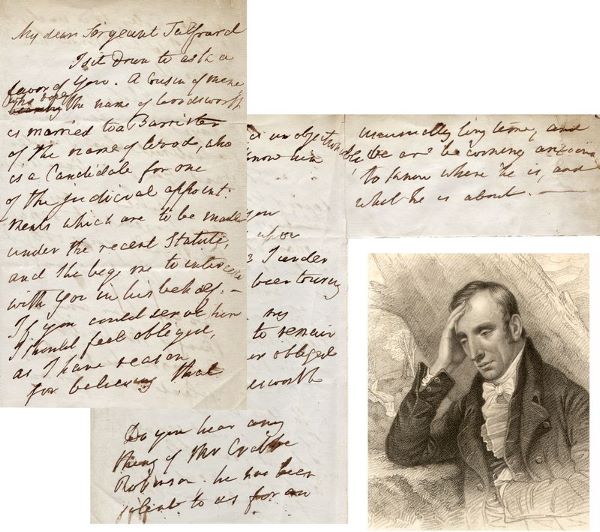 My dear Sergeant Talfourd
I sit down to ask a
favor of you. A Cousin of mine
who bore the name of Wordsworth
is married to a Barrister
of the name of Wood, who
is a Candidate for one
of the judicial appoint
ments which are to be made
under the recent Statute,
and she begs me to intercede
with you in his behalf. —
If you could serve him
I should feel obliged,
as I have reason
for believing that
an objection
know him
you
I under
been touring
my
to remain
obliged
Do you hear any
thing of Mr Crabbe
Robinson. he has been
silent to us for an
unusually long time, and
we are becoming anxious
to know where he is, and
what he is about. —